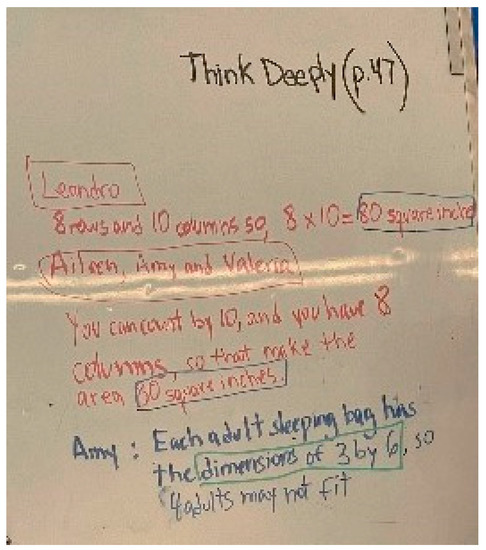 Think Deeply (p.47)
Leandro
8 rows and 10 columns so, 8 x 10 = 80 square inche
Aileen, Amy and Valeria
You can count by 10, and you have 8
columns, so that make the
area 80 square inches.
Amy : Each adult sleeping bag has
the dimensions of 3 by 6, so
4 adults may not fit